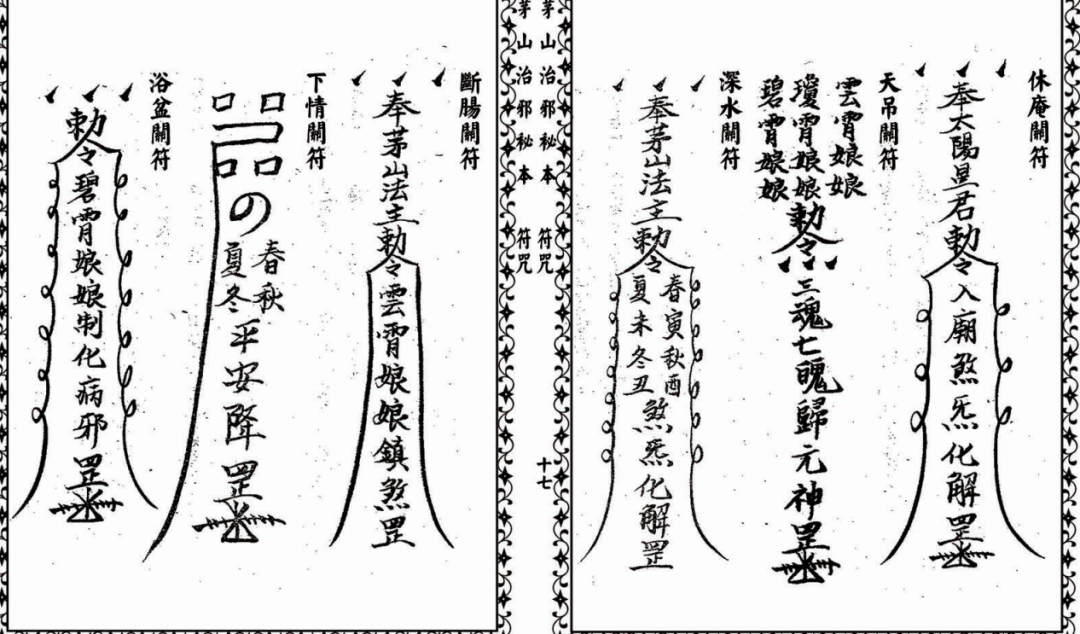 休庵關符
奉太陽星君勅令入廟煞炁化解罡
天吊關符
雲霄娘娘
瓊霄娘娘
碧霄娘娘
勅令三魂七魄歸元神罡
深水關符
奉茅山法主勅令
春寅秋酉
夏未冬丑
煞炁化解罡
茅山治邪秘本 符咒
十七
茅山治邪秘本 符咒
斷腸關符
奉茅山法主勅令雲霄娘娘鎮煞罡
下情關符
の
春秋
夏冬
平安降罡
浴盆關符
勅令碧霄娘娘制化病邪罡